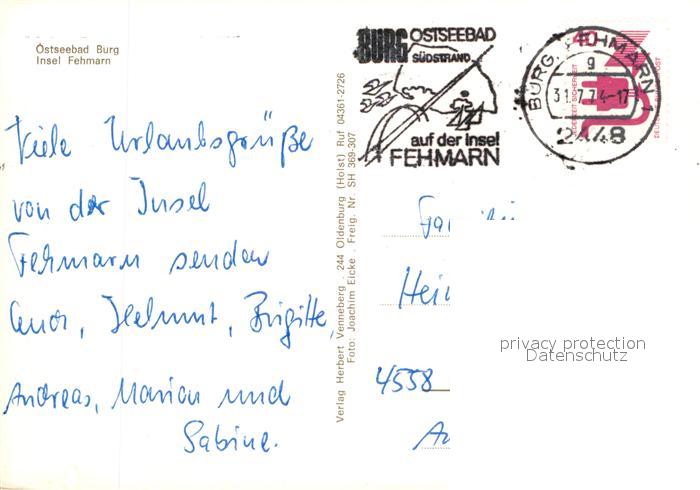 Östseebad Burg
Insel Fehmarn
BURG OSTSEEBAD
SÜDSTRAND
auf der Insel
FEHMARN
BURG, FEHMARN 1
g
31.7.74-17
2448
40
Viele Urlaubsgrüße
von der Insel
Fehmarn senden
Helmut, Brigitte,
Andreas, Marion und
Sabine.
Verlag Herbert Venneberg . 244 Oldenburg (Holst) Ruf 04361-2726
Foto: Joachim Eicke . Freig. Nr. SH 369-307
4558
privacy protection
Datenschutz